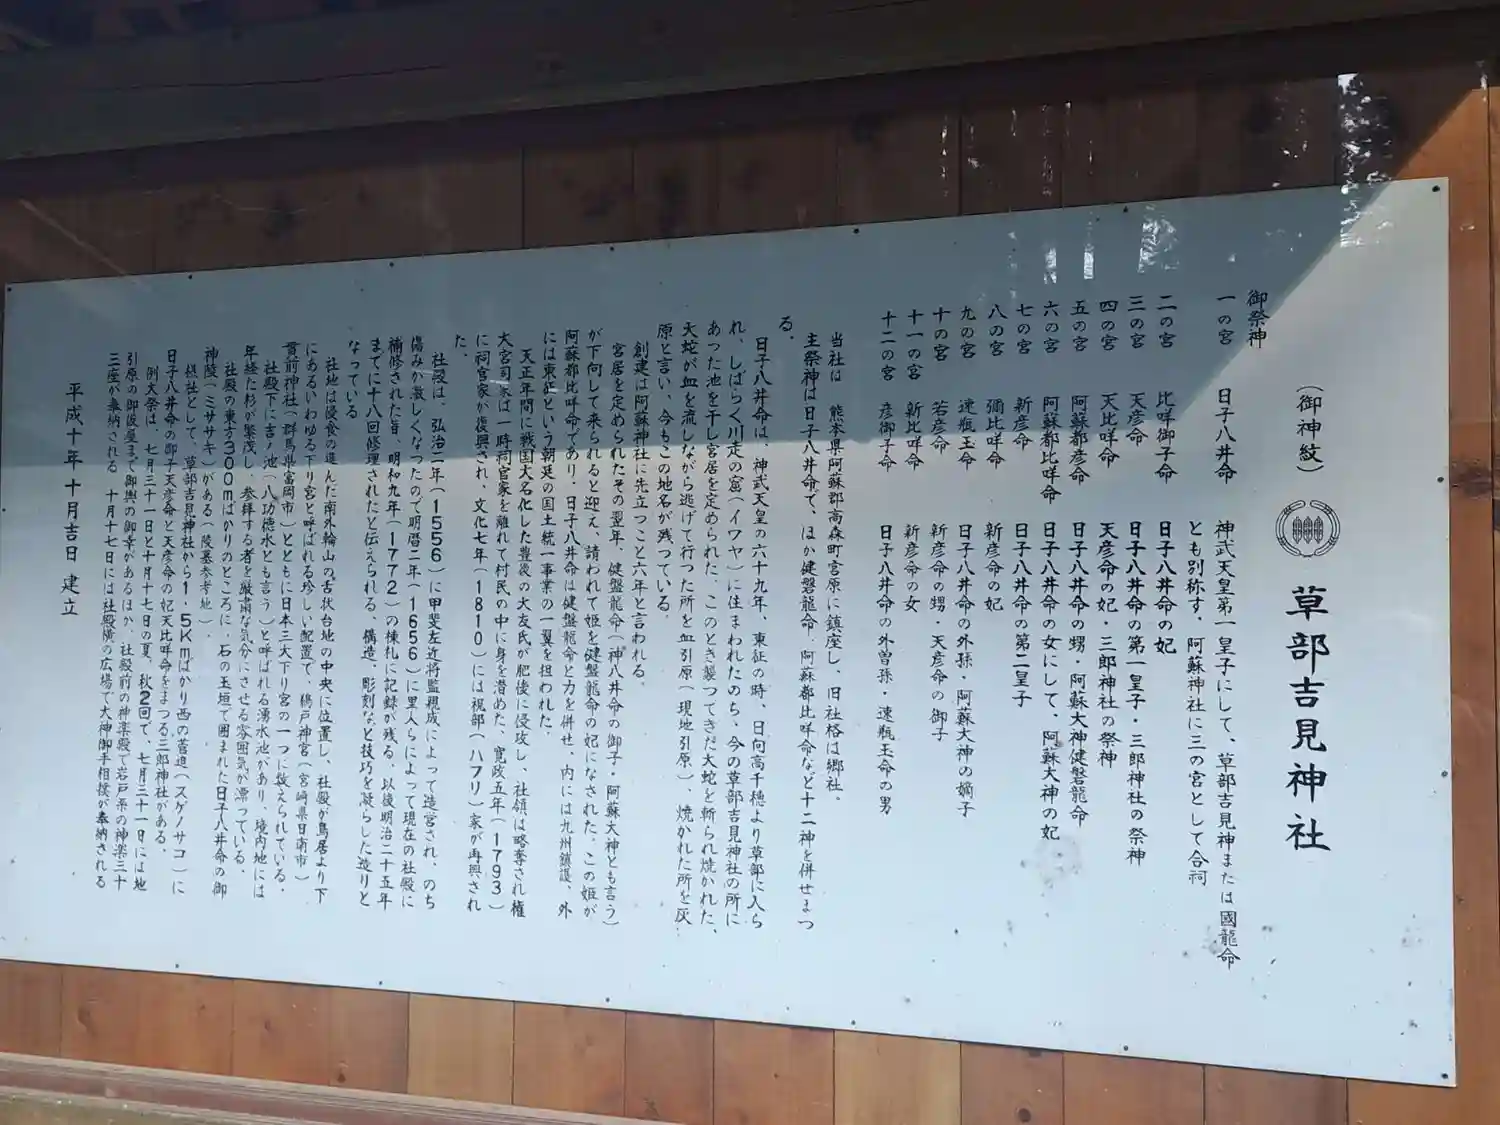 (御神紋) 草部吉見神社
御祭神
一の宮 日子八井命 神武天皇第一皇子にして、草部吉見神または國龍命
とも別称す、阿蘇神社に三の宮として合祠
二の宮 比咩御子命 日子八井命の妃
三の宮 天彦命 日子八井命の第一皇子・三郎神社の祭神
四の宮 天比咩命 天彦命の妃・三郎神社の祭神
五の宮 阿蘇都彦命 日子八井命の甥・阿蘇大神健磐龍命
六の宮 阿蘇都比咩命 日子八井命の女にして、阿蘇大神の妃
七の宮 新彦命 日子八井命の第二皇子
八の宮 彌比咩命 新彦命の妃
九の宮 速瓶玉命 日子八井命の外孫・阿蘇大神の嫡子
十の宮 若彦命 新彦命の甥・天彦命の御子
十一の宮 新比咩命 新彦命の女
十二の宮 彦御子命 日子八井命の外曽孫・速瓶玉命の男
当社は 熊本県阿蘇郡高森町宮原に鎮座し、旧社格は郷社。
主祭神は日子八井命で、ほか健磐龍命、阿蘇都比咩命など十二神を併せまつ
る。
日子八井命は、神武天皇の六十九年、東征の時、日向高千穂より草部に入ら
れ、しばらく川走の窟(イワヤ)に住まわれたのち、今の草部吉見神社の所に
あった池を干し宮居を定められた、このとき襲ってきた大蛇を斬られ焼かれた、
大蛇が血を流しながら逃げて行った所を血引原(現地引原)、焼かれた所を灰
原と言い、今もこの地名が残っている。
創建は阿蘇神社に先立つこと六年と言われる。
宮居を定められたその翌年、健盤龍命(神八井命の御子・阿蘇大神とも言う)
が下向して来られると迎え、請われて姫を健盤龍命の妃になされた、この姫が
阿蘇都比咩命であり、日子八井命は健盤龍命と力を併せ、内には九州鎮護、外
には東征という朝廷の国土統一事業の一翼を担われた。
天正年間に戦国大名化した豊後の大友氏が肥後に侵攻し、社領は略奪され権
大宮司家は一時祠官家を離れて村民の中に身を潜めた、寛政五年(1793)
に祠官家が復興され、文化七年(1810)には祝部(ハフリ)家が再興され
た。
社殿は、弘治二年(1556)に甲斐左近将監親成によって造営され、のち
傷みか激しくなったので明暦二年(1656)に里人らによって現在の社殿に
補修された旨、明和九年(1772)の棟札に記録が残る、以後明治二十五年
までに十八回修理されたと伝えられる、構造、彫刻など技巧を凝らした造りと
なっている
社地は侵食の進んだ南外輪山の舌状台地の中央に位置し、社殿が鳥居より下
にあるいわゆる下り宮と呼ばれる珍しい配置で、鵜戸神宮(宮崎県日南市)
貫前神社(群馬県富岡市)とともに日本三大下り宮の一つに数えられている。
社殿下に吉ノ池(八功徳水とも言う)と呼ばれる湧水池があり、境内地には
年経た杉が繁茂し、参拝する者を厳粛な気分にさせる雰囲気が漂っている。
社殿の東方300mばかりのところに、石の玉垣で囲まれた日子八井命の御
神陵(ミササキ)がある(陵墓参考地)。
摂社として、草部吉見神社から1・5Kmばかり西の菅迫(スゲノサコ)に
日子八井命の御子天彦命と天彦命の妃天比咩命をまつる三郎神社がある。
例大祭は、七月三十一日と十月十七日の夏、秋2回で、七月三十一日には地
引原の御仮屋まで御輿の御幸があるほか、社殿前の神楽殿で岩戸系の神楽三十
三座が奉納される 十月十七日には社殿横の広場で大神御手相撲が奉納される
平成十年十月吉日 建立